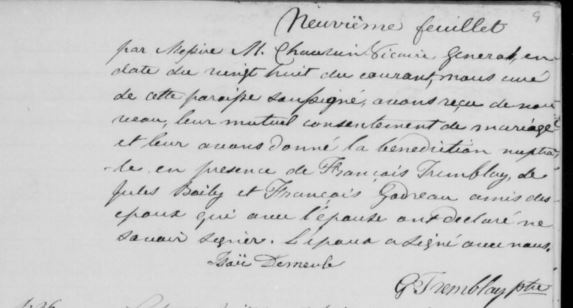 Neuvième feuillet 9
par Messire M. Vicaire General, en
date du vingt huit du courant, nous curé
de cette paroisse soussigné, avons reçu de nou
veau, leur mutuel consentement de mariage
et leur avons donné la bénédiction nuptia-
le en presence de François Tremblay, de
Jules Baily et François Godreau amis des
epoux qui avec l'épouse ont declaré ne
savoir signer. L'époux a signé avec nous.
Demeule
G Tremblay ptre